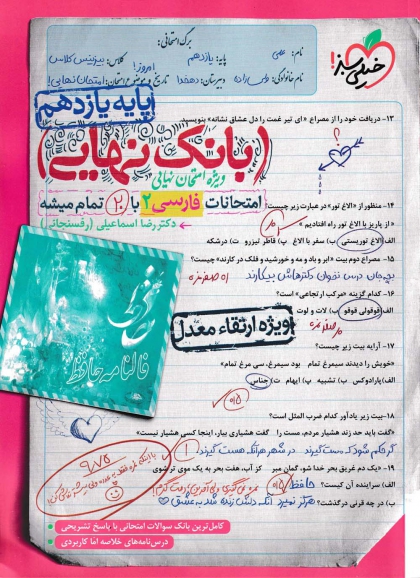 خیلی سبز!
برگ امتحانی:
نام:
پایه: یازدهم
کلاس:
نام خانوادگی:
دبیرستان: دهخدا
تاریخ و موضوع امتحان: امتحان نهایی!
امروز!
پایه یازدهم
۱۳- دریافت خود را از مصراع «ای تیر غمت را دل عشاق نشانه» بنویسید.
(بانک نهایی)
ویژه امتحان نهایی
امتحانات فارسی ۲ با ۲۰ تمام میشه
دکتر رضا اسماعیلی (رفسنجانی)
۱۴- منظور از «الاغ تور» در عبارت زیر چیست؟
«از پاریز با الاغ تور راه افتادیم»
الف) الاغ توریستی ب) سفر با الاغ پ) قاطر لیزرو ت) درشکه
۱۵- مصراع دوم بیت «ابر و باد و مه و خورشید و فلک در کارند» چیست؟
بچه‌جان درس نخوان دکترهاش بیکارند
۱۶- کدام گزینه «مرکب ارتجاعی» است؟
الف) قوقولی قوقو ب) لات و لوت
ویژه ارتقاء معدل
۱۷- آرایه بیت زیر چیست؟
«خویش را دیدند سیمرغ تمام بود سیمرغ، سی مرغ تمام»
الف) پارادوکس ب) تشبیه پ) ایهام ت) جناس
فالنامه حافظ
۱۸- بیت زیر یادآور کدام ضرب المثل است؟
«گفت باید حد زند هشیار مردم، مست را گفت هشیاری بیار، اینجا کسی هشیار نیست»
گر حکم شود که مست گیرند در شهر هر آنکه هست گیرند
۱۹- «یک دم غریق بحر خدا شو، گمان مبر کز آب، هفت بحر به یک موی تر شوی
الف) سراینده آن کیست؟ حافظ
ب) در چه قرنی درگذشت؟ هرگز نمیرد آنکه دلش زنده شد به عشق
۹/۷۵
کامل‌ترین بانک سوالات امتحانی با پاسخ تشریحی
درس‌نامه‌های خلاصه اما کاربردی